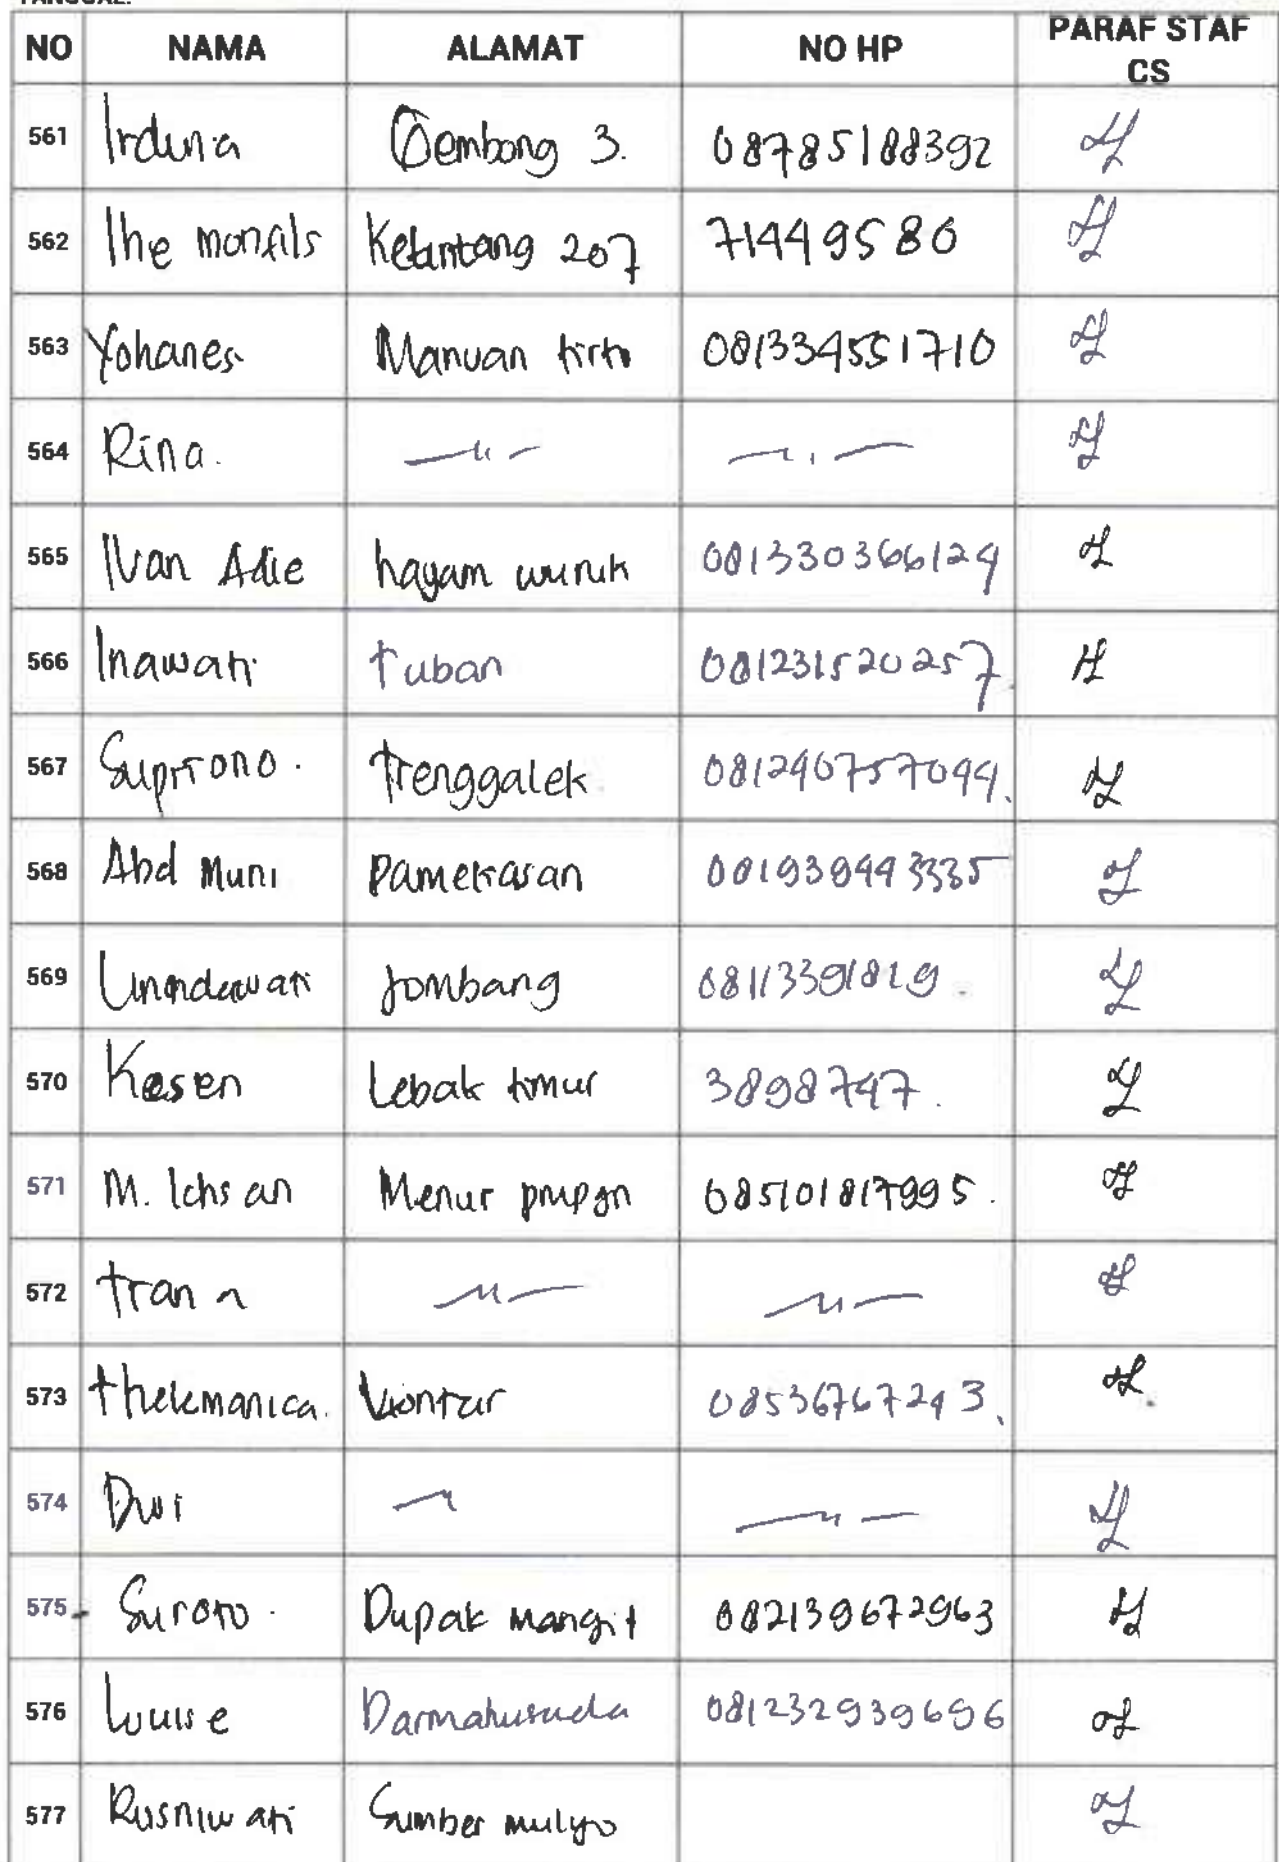 TANGGAL:
NO NAMA ALAMAT NO HP PARAF STAF CS
561 Irduna Gembong 3. 08785188392
562 The monfils Ketintang 207 71449580
563 Yohanes Manuan tirto 081334551710
564 Rina. — " — — " —
565 Ivan Adie hayam wuruk 081330366124
566 Inawati tuban 081231520257
567 Supriono. Trenggalek 081240757044.
568 Abd Muni Pamekasan 081939443335
569 jombang 08113391819
570 Kasen Lebak timur 3898747.
571 M. Ichsan Menur pmpgn 085101817995.
572 — " — — " —
573 08536767243.
574 Dwi — " — " —
575 Suroto. Dupak mangit 082139672963
576 Louise Darmahusada 081232939696
577 Rusniwati Sumber mulyo